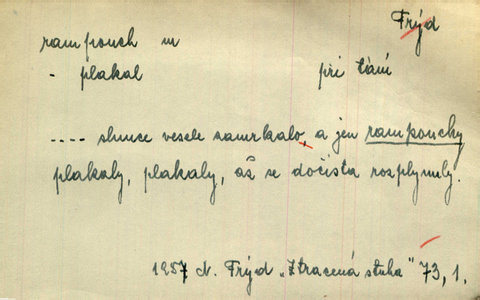 Frýd
rampouch m
- plakal při tání
.... slunce vesele zamrkalo, a jen rampouchy
plakaly, plakaly, až se dočista rozplynuly.
1957 N. Frýd „Ztracená stuha" 73, 1.